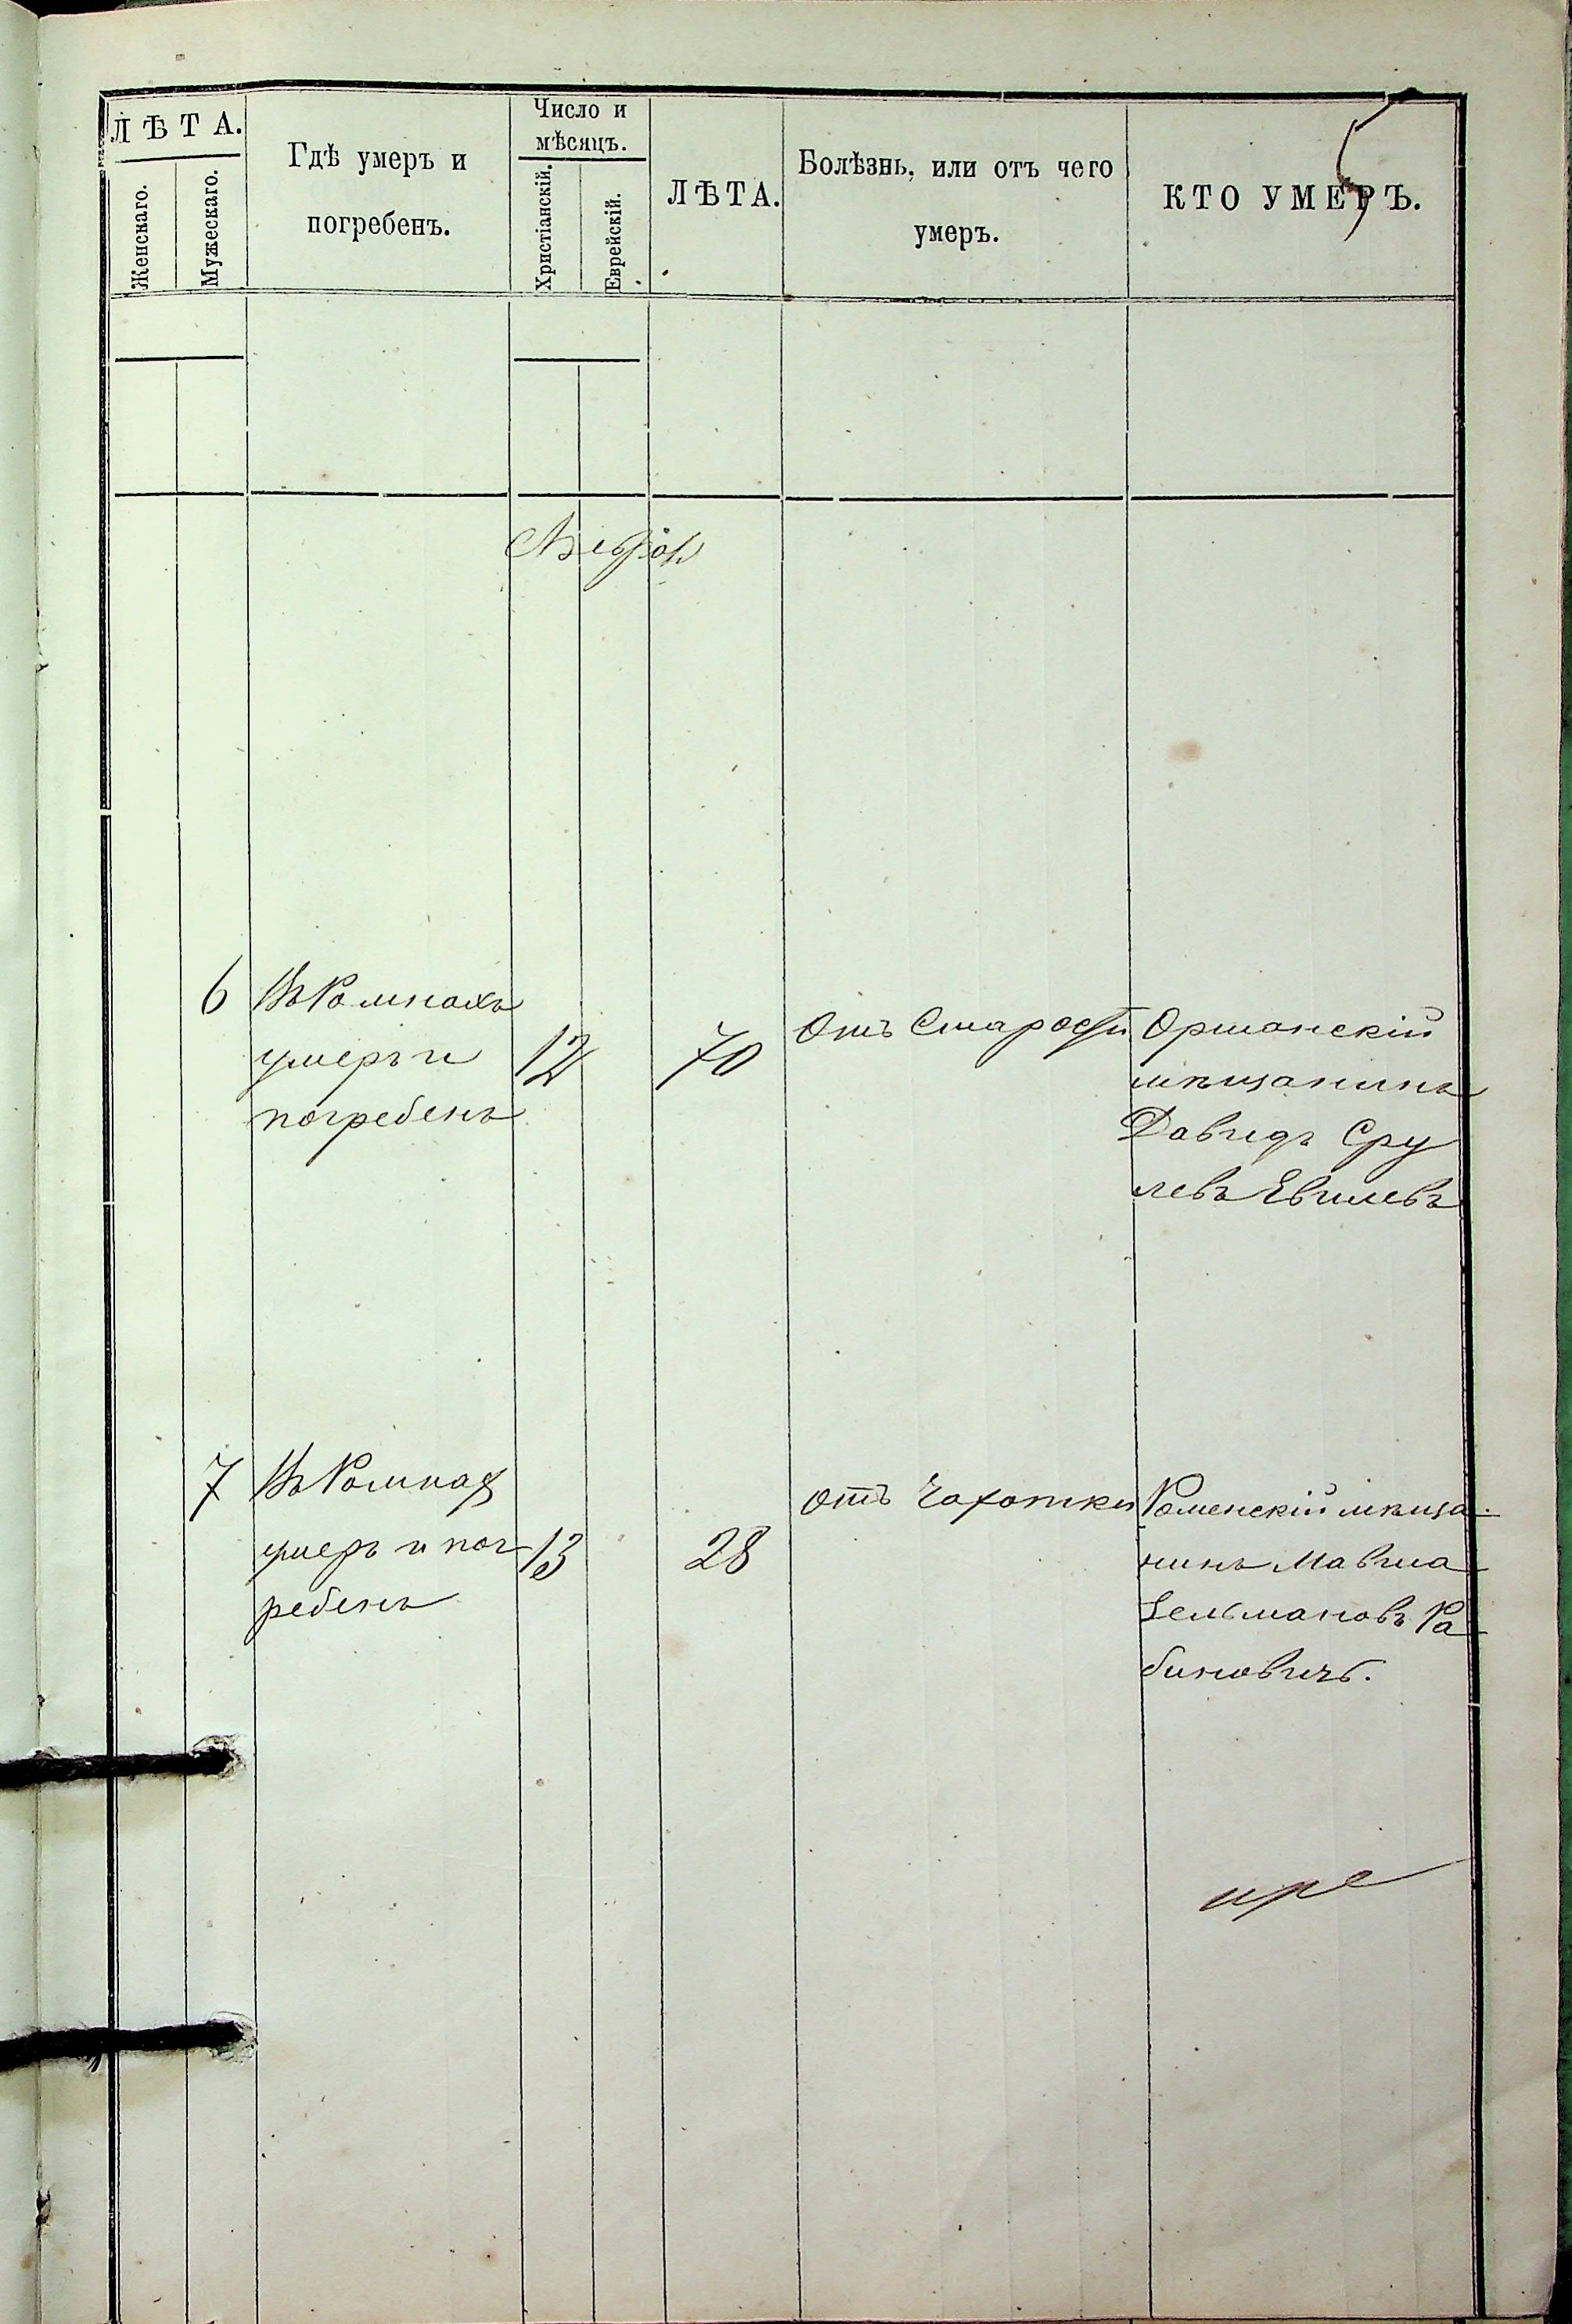 ЛѢТА.
Женскаго.
Мужескаго.
Гдѣ умеръ и
погребенъ.
Число и
мѣсяцъ.
Христіанскій.
Еврейскій.
ЛѢТА.
Болѣзнь, или отъ чего
умеръ.
КТО УМЕРЪ.
6
Въ Ромнахъ
умеръ и
погребенъ
12
70
Отъ Старости
Оршанскій
мѣщанинъ
Давидъ Сру
левъ Евилевъ
7
Въ Ромнах
умеръ и пог
ребенъ
13
28
отъ Чахотки
Роменскій мѣща-
нинъ Мавша
Зельмановъ Ра
биновичъ.